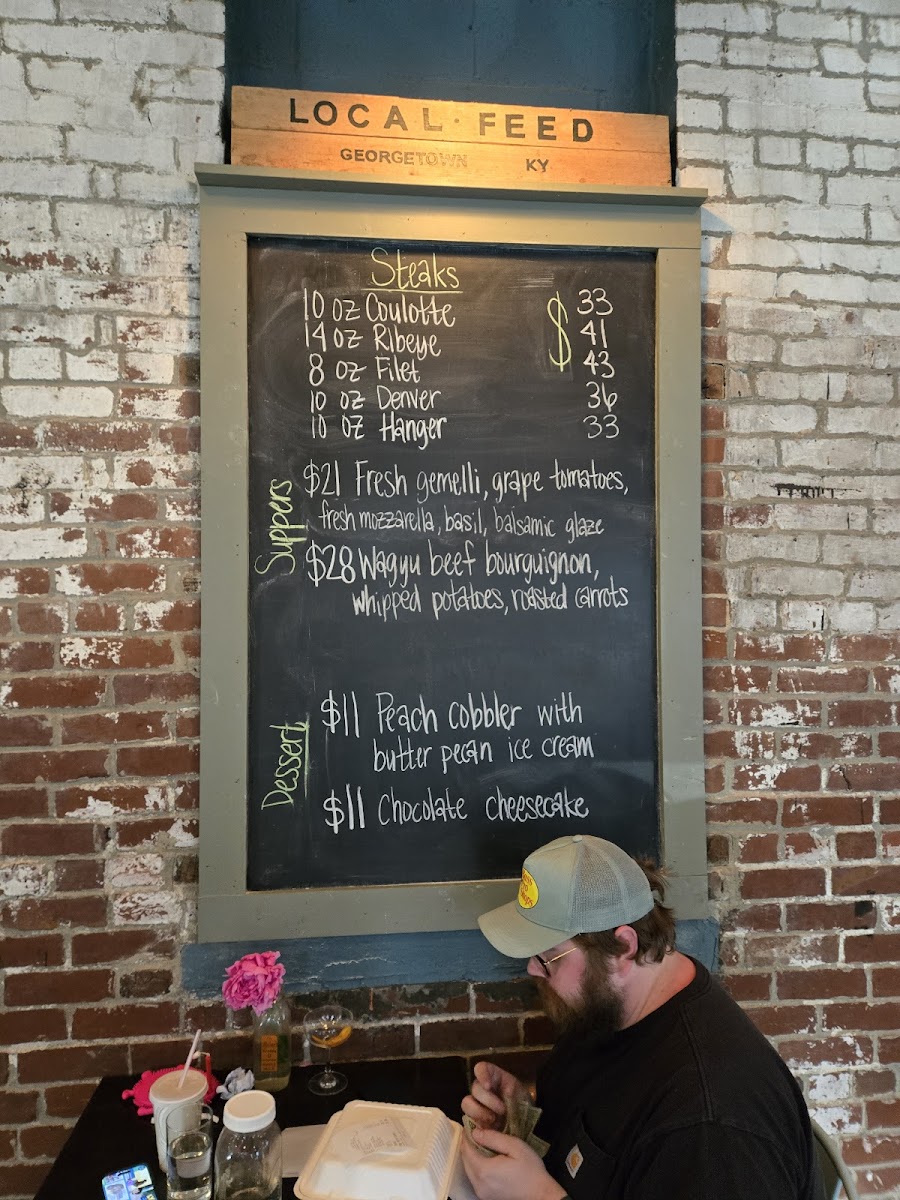 LOCAL · FEED
GEORGETOWN KY
Steaks
10 oz Coulotte $ 33
14 oz Ribeye 41
8 oz Filet 43
10 oz Denver 36
10 oz Hanger 33
Suppers
$21 Fresh gemelli, grape tomatoes,
fresh mozzarella, basil, balsamic glaze
$28 Wagyu beef bourguignon,
whipped potatoes, roasted carrots
Dessert
$11 Peach cobbler with
butter pecan ice cream
$11 Chocolate cheesecake